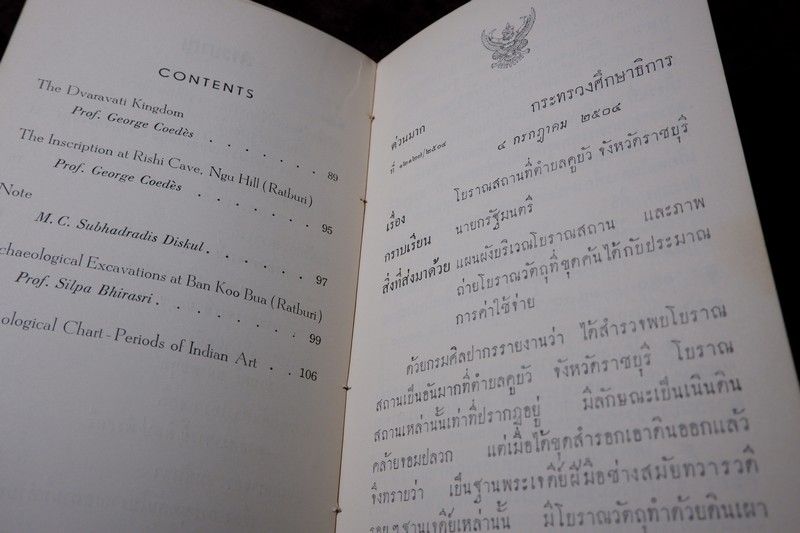 CONTENTS
The Dvaravati Kingdom
Prof. George Coedès . . . . . . . 89
The Inscription at Rishi Cave, Ngu Hill (Ratburi)
Prof. George Coedès . . . . . . . 95
Note
M. C. Subhadradis Diskul . . . . . . 97
chaeological Excavations at Ban Koo Bua (Ratburi)
Prof. Silpa Bhirasri . . . . . . . . 99
ological Chart - Periods of Indian Art . . . 106
กระทรวงศึกษาธิการ
ด่วนมาก
ที่ ๑๒๑๒๗/๒๕๐๔
๔ กรกฎาคม ๒๕๐๔
เรื่อง โบราณสถานที่ตำบลคูบัว จังหวัดราชบุรี
กราบเรียน นายกรัฐมนตรี
สิ่งที่ส่งมาด้วย แผนผังบริเวณโบราณสถาน และภาพ
ถ่ายโบราณวัตถุที่ขุดค้นได้กับประมาณ
การค่าใช้จ่าย
ด้วยกรมศิลปากรรายงานว่า ได้สำรวจพบโบราณ
สถานเป็นอันมากที่ตำบลคูบัว จังหวัดราชบุรี โบราณ
สถานเหล่านั้นเท่าที่ปรากฏอยู่ มีลักษณะเป็นเนินดิน
คล้ายจอมปลวก แต่เมื่อได้ขุดสำรอกเอาดินออกแล้ว
จึงทราบว่า เป็นฐานพระเจดีย์ฝีมือช่างสมัยทวารวดี
รอบๆ ฐานเจดีย์เหล่านั้น มีโบราณวัตถุทำด้วยดินเผา